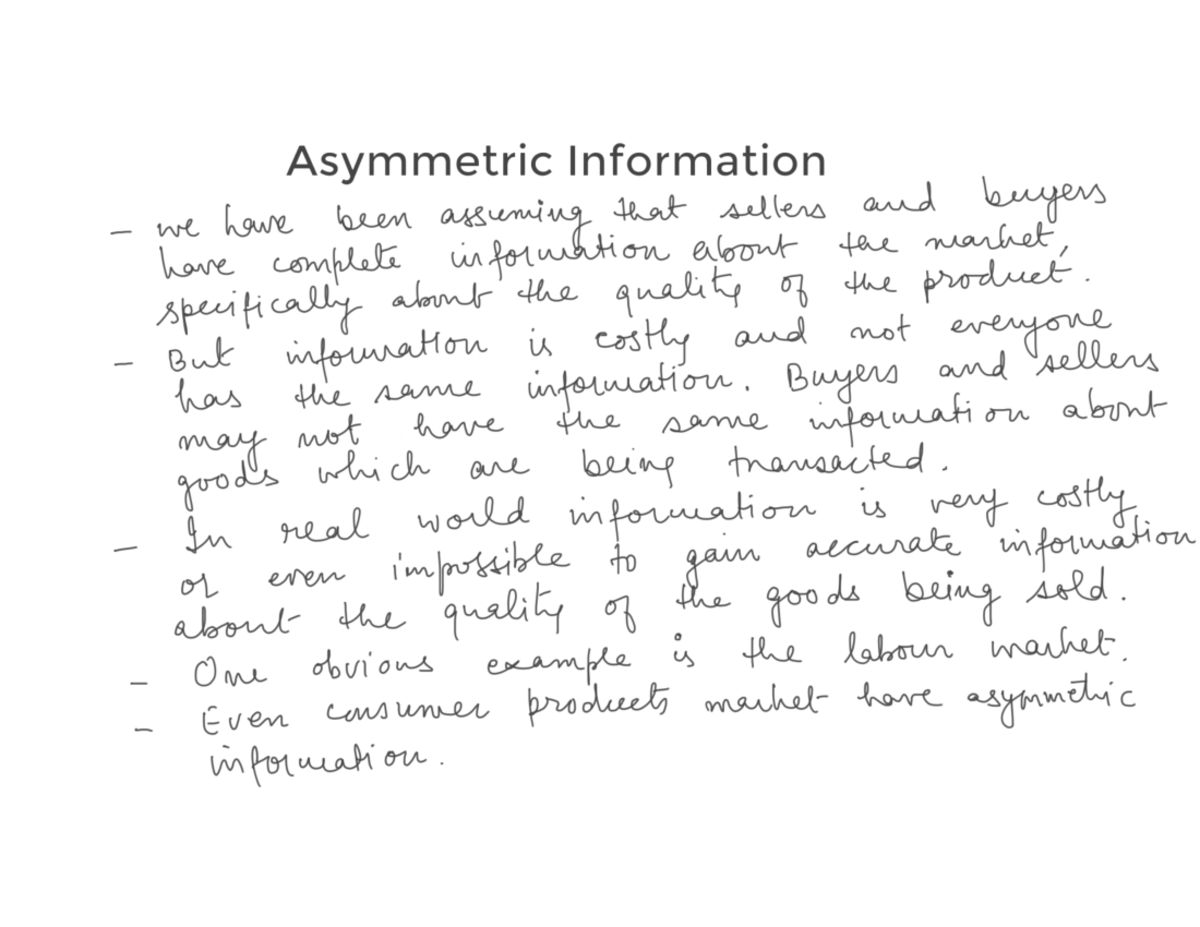 Asymmetric Information
- we have been assuming that sellers and buyers
have complete information about the market,
specifically about the quality of the product.
- But information is costly and not everyone
has the same information. Buyers and sellers
may not have the same information about
goods which are being transacted.
- In real world information is very costly
or even impossible to gain accurate information
about the quality of the goods being sold.
- One obvious example is the labour market.
- Even consumer products market have asymmetric
information.